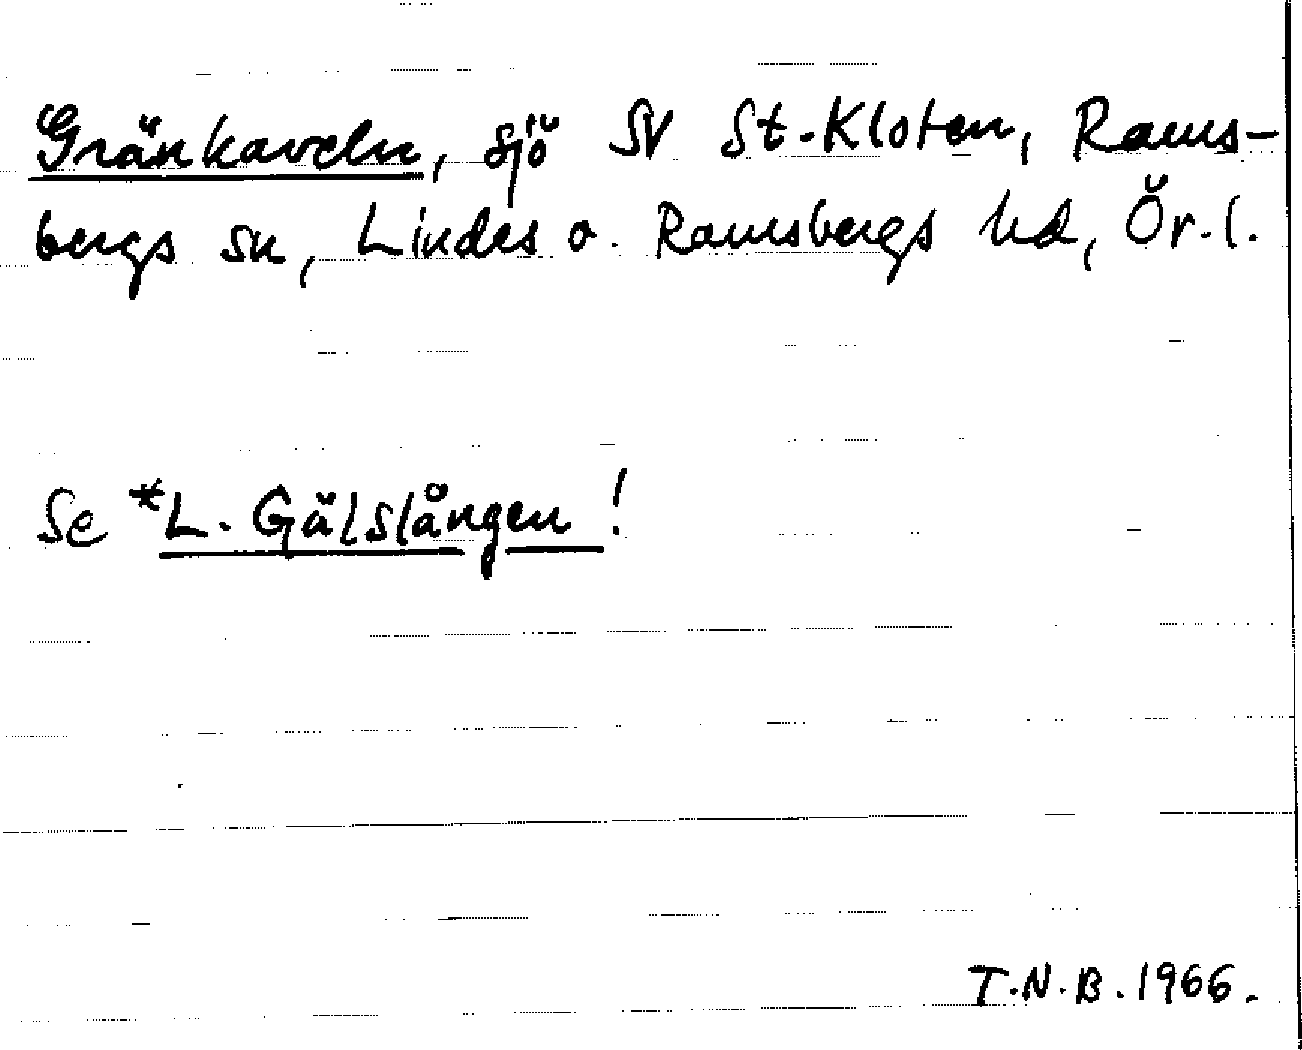 Gränkaveln, sjö SV St-Kloten, Rams-
bergs sn, Lindes o. Ramsbergs hd, Ör. l.
Se *L. Gälslången!
T.N.B. 1966.